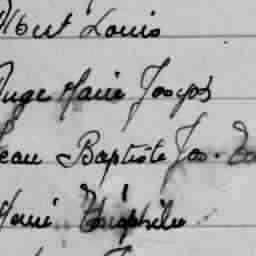 Albert Louis
Ange Marie Joseph
Jean Baptiste Jos.
Marie Théophile